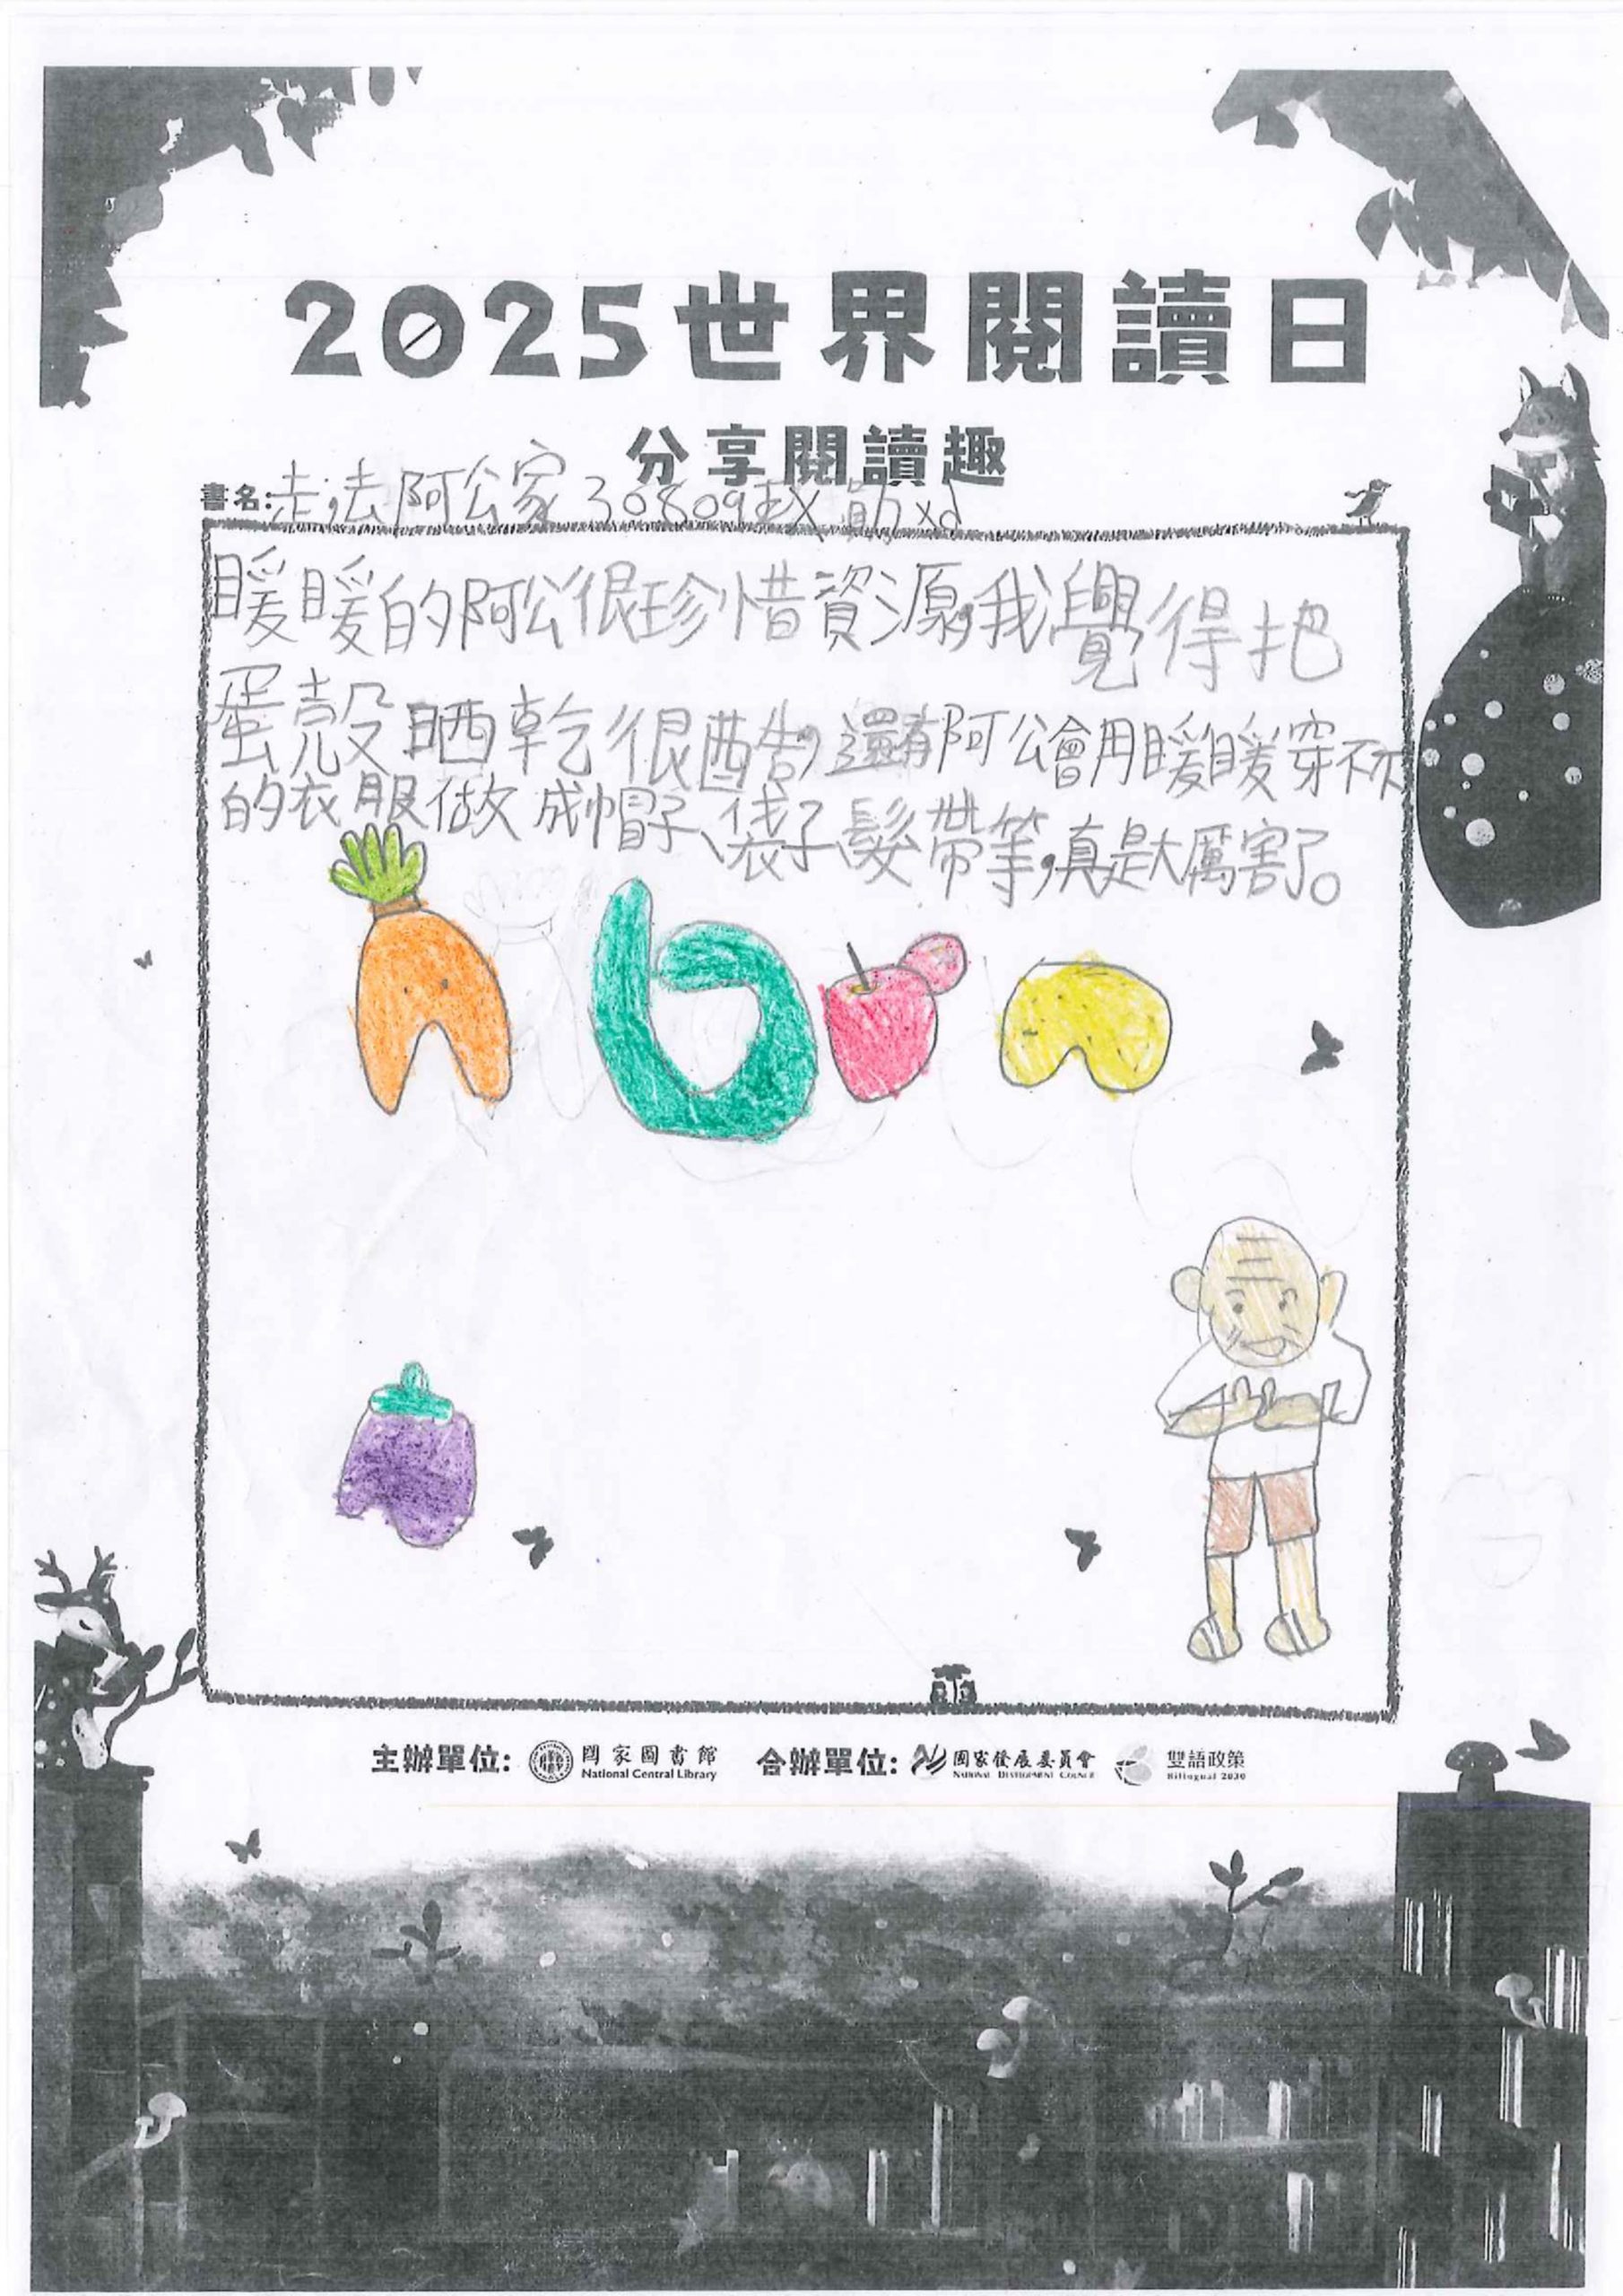 2025世界閱讀日
分享閱讀趣
書名:走,去阿公家 30809
暖暖的阿公很珍惜資源,我覺得把
蛋殼晒乾很酷,還有阿公會用暖暖穿不下
的衣服做成帽子、袋子、髮帶等,真是太厲害了。
主辦單位: 國家圖書館 合辦單位: 國家發展委員會 雙語政策
National Central Library NATIONAL DEVELOPMENT COUNCIL Bilingual 2030